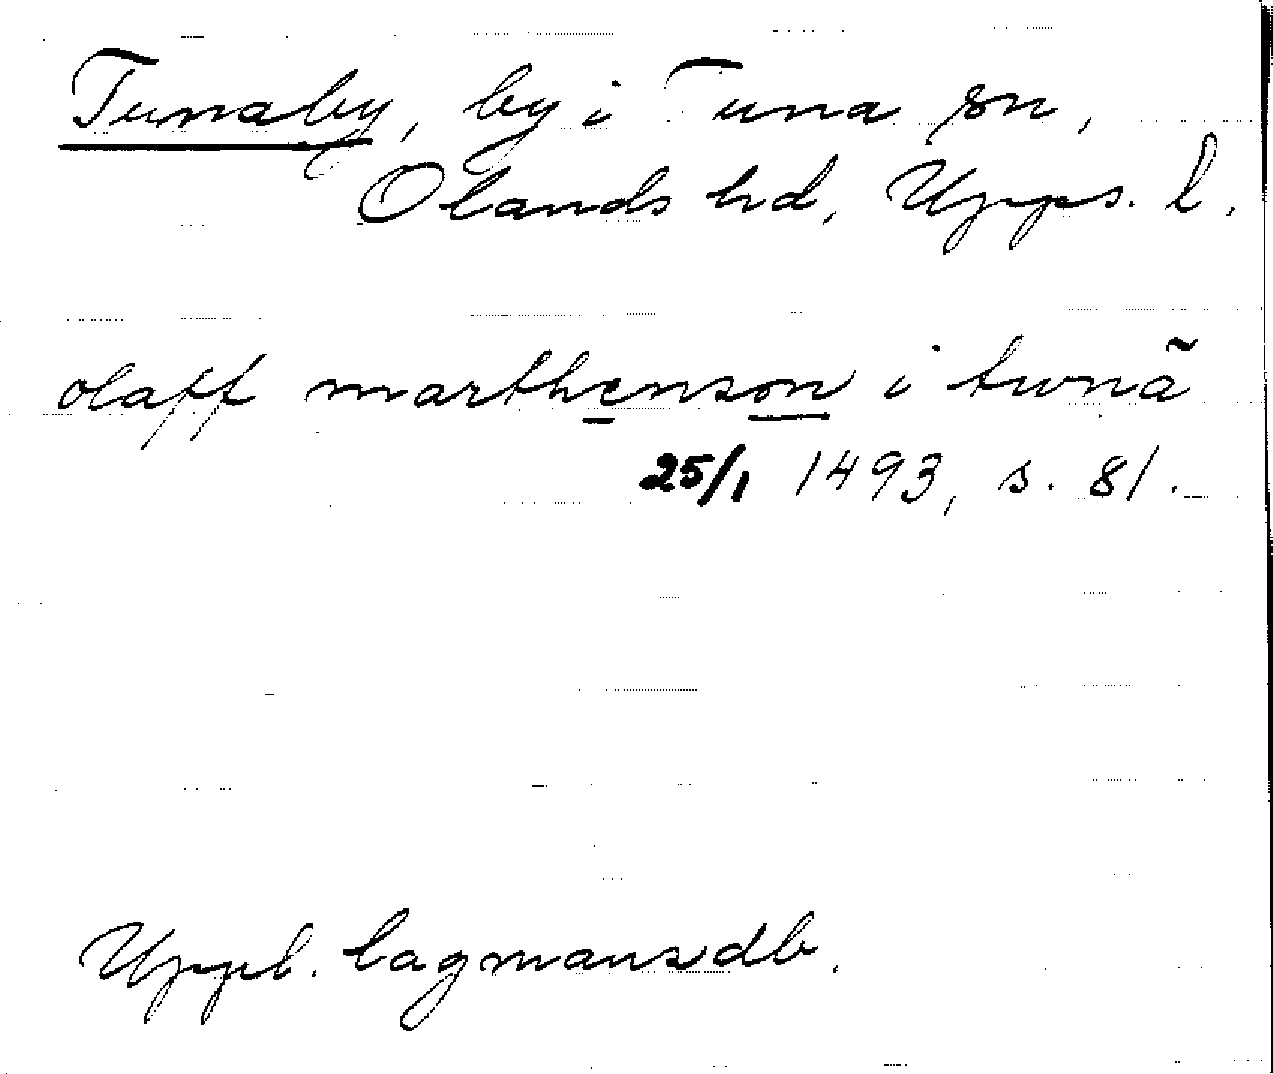 Tunaby, by i Tuna sn,
Olands hd, Upps. l.
olaff marthenson i twnã
25/1 1493, s. 81.
Uppl. lagmansdb.